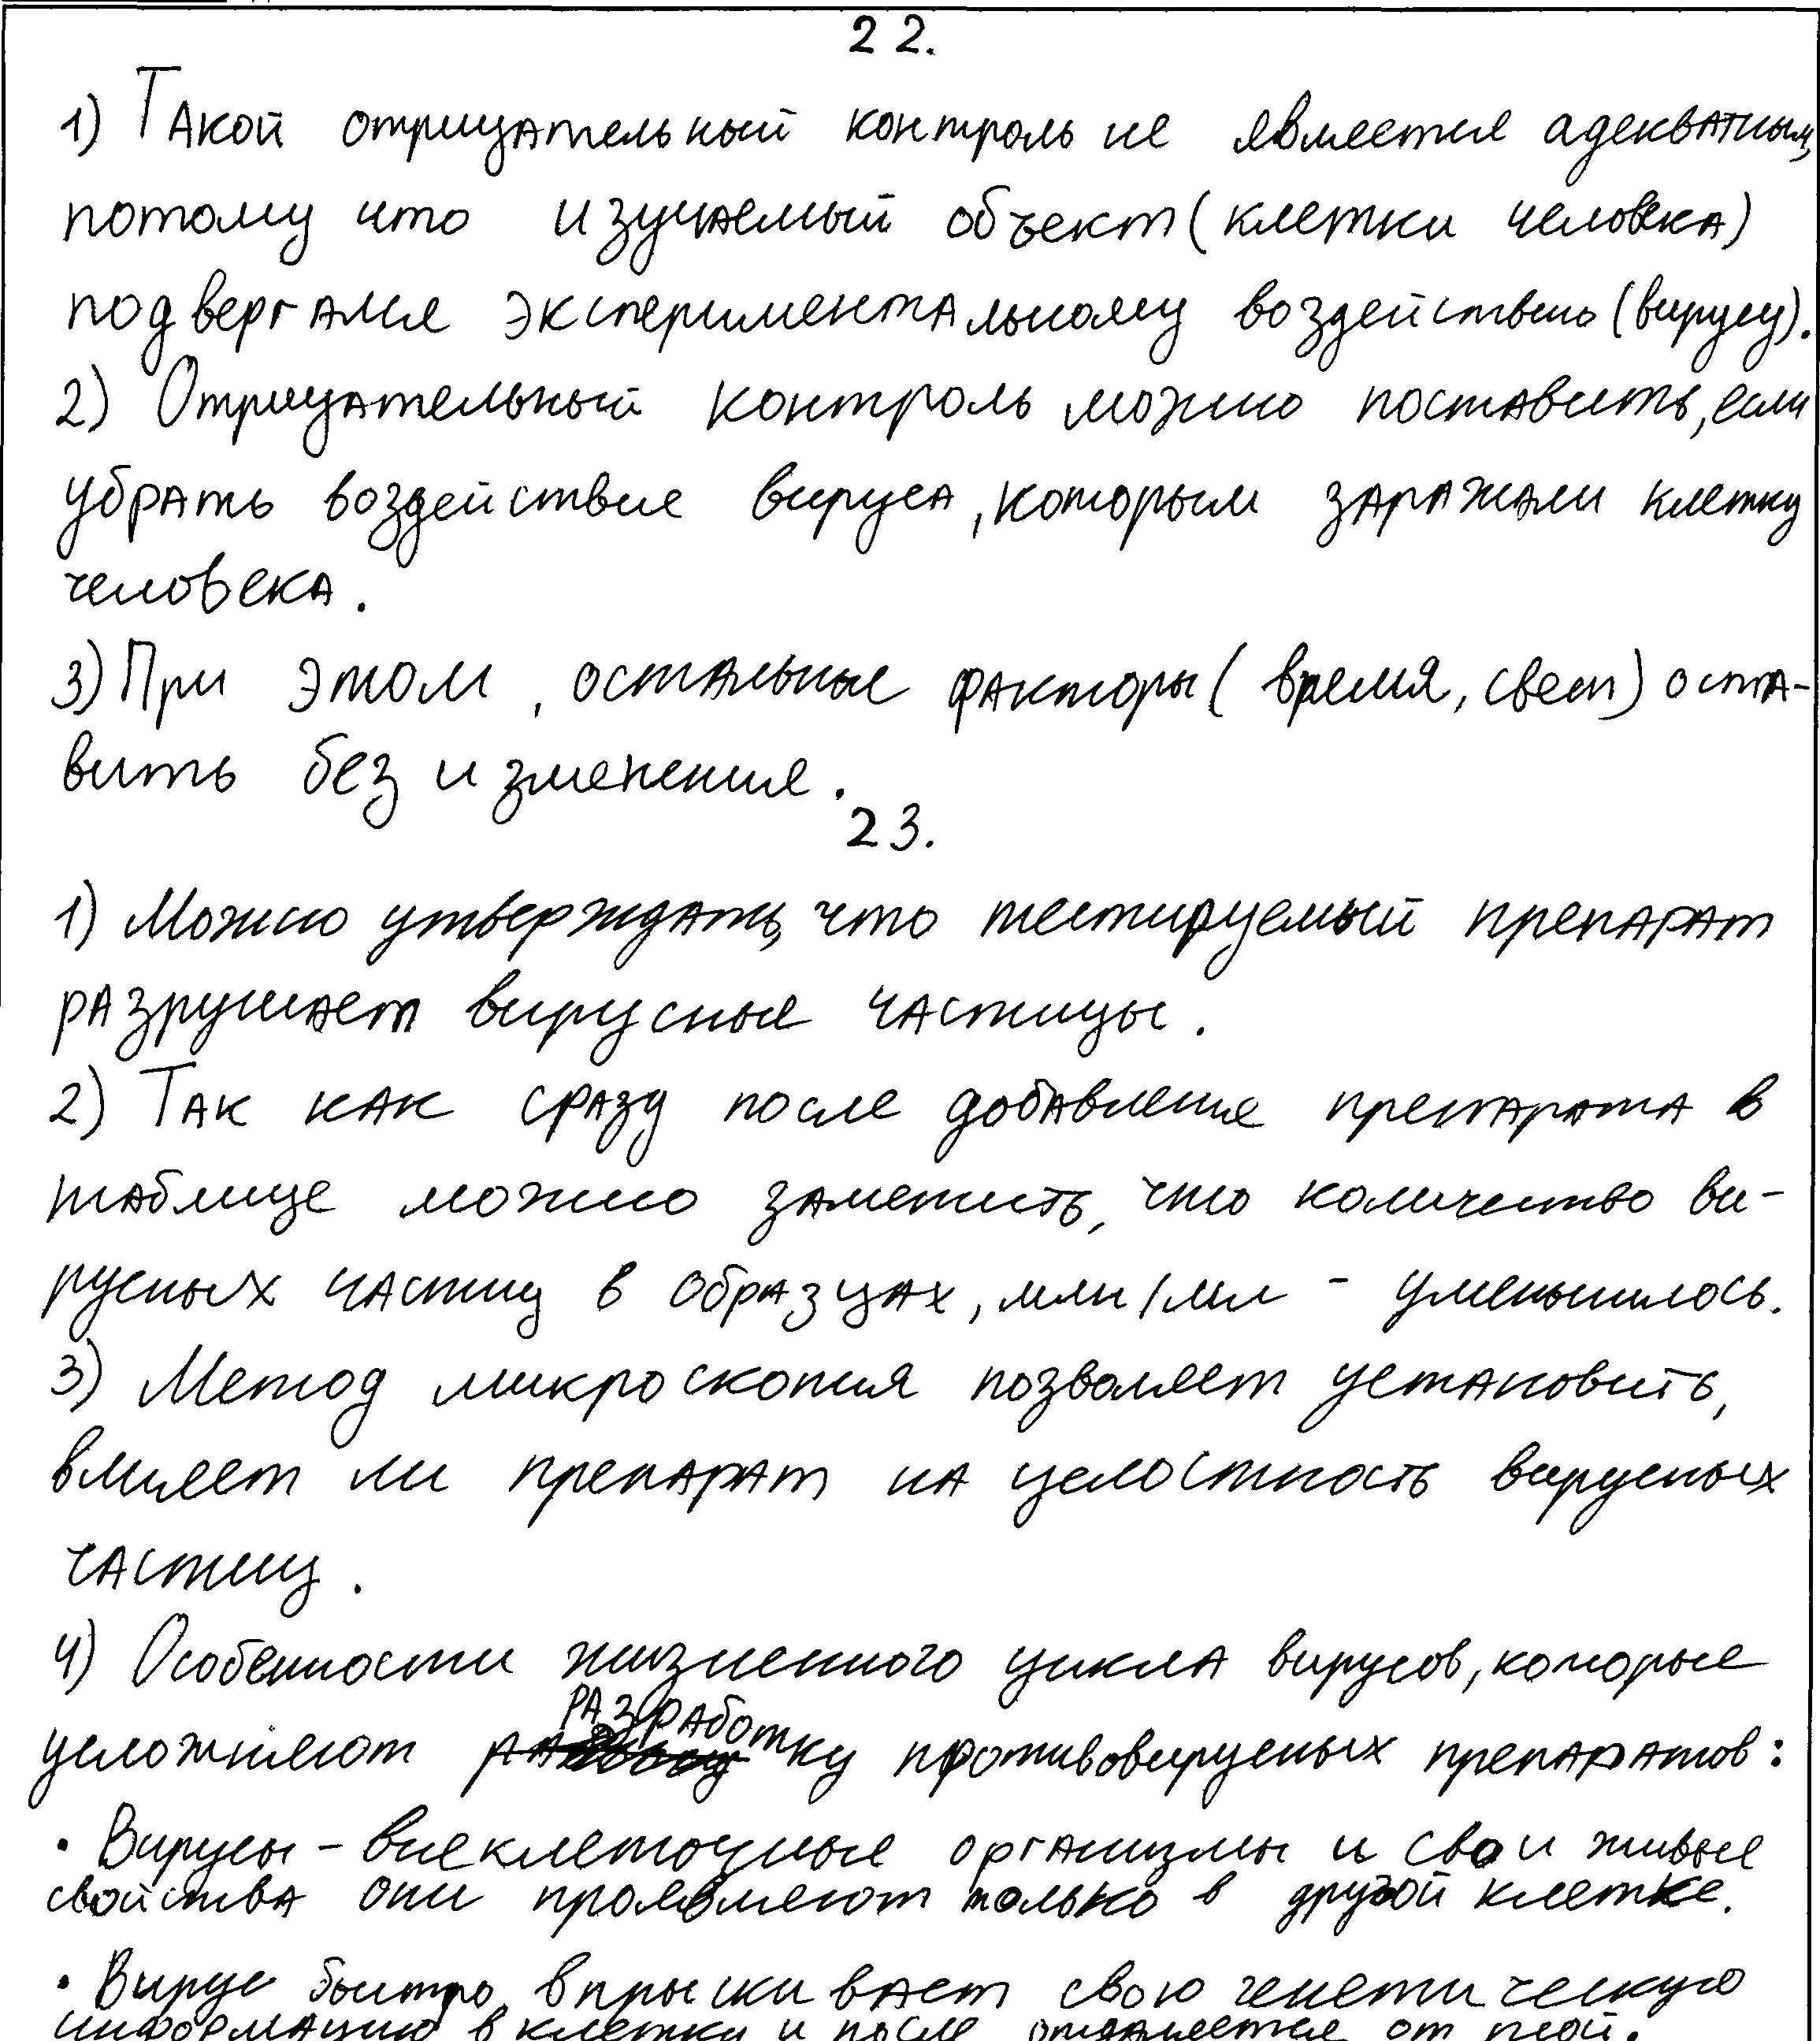 22.
1) Такой отрицательный контроль не является адекватным,
потому что изучаемый объект (клетки человека)
подвергался экспериментальному воздействию (вирусу).
2) Отрицательный контроль можно поставить, если
убрать воздействие вируса, которым заражали клетку
человека.
3) При этом, остальные факторы (время, свет) оста-
вить без изменения.
23.
1) Можно утверждать, что тестируемый препарат
разрушает вирусные частицы.
2) Так как сразу после добавления препарата в
таблице можно заметить, что количество ви-
русных частиц в образцах, млн/мл - уменьшилось.
3) Метод микроскопия позволяет установить,
влияет ли препарат на целостность вирусных
частиц.
4) Особенности жизненного цикла вирусов, которые
усложняют разработку противовирусных препаратов:
• Вирусы - внеклеточные организмы и свои живые
свойства они проявляют только в другой клетке.
• Вирус быстро впрыскивает свою генетическую
информацию в клетку и после отдаляется от неё.